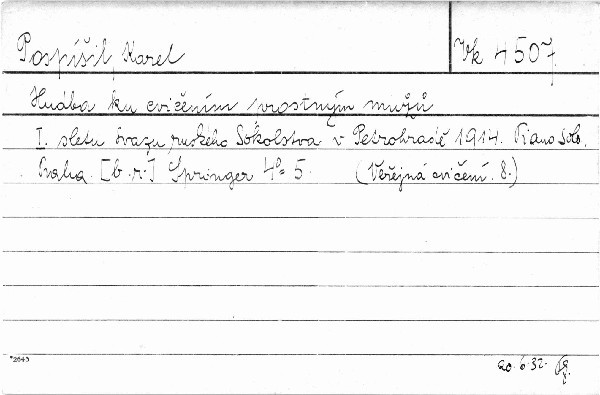 Pospíšil, Karel Vk 4507
Hudba ku cvičením vzrostným mužů
I. sletu svazu ruského Sokolstva v Petrohradě 1914. Piano Solo.
Praha. [b.r.] Springer 4º 5. (Veřejná cvičení. 8.)
*2643 20.6.32.